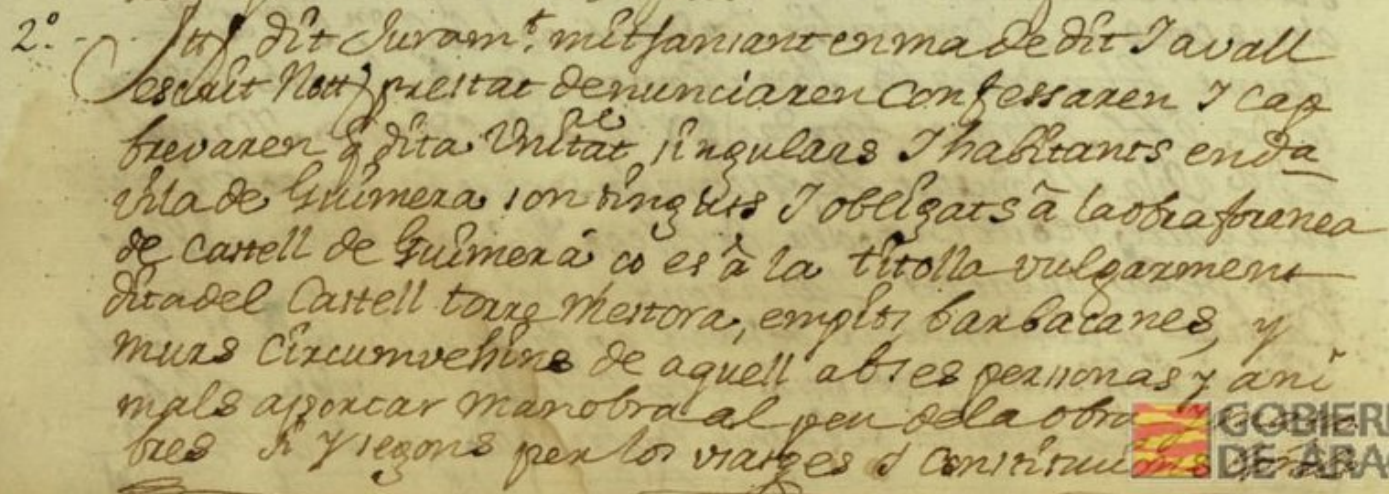 2º Ittt dit Juramt. mitsansant en ma de dit I avall
escrit Nott prestat denunciaren confessaren I cap
brevaren q dita Unitat singulars I habitants en da
vila de Guimera son tinguts I obligats â la obra foranea
de Castell de Guimerá ço es â la titolla vulgarment
dita del Castell torre Mestora, empits barbacanes, y
murs circumvehins de aquell ab ses personas y ani
mals aportar manobra al peu de la obra
bres si y segons per los usatges I constitucions
GOBIER
DE ARA